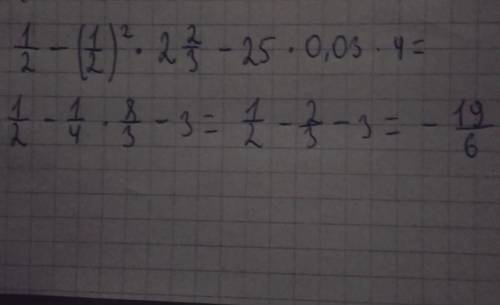 1/2 - (1/2)² · 2 2/3 - 25 · 0,03 · 4 =
1/2 - 1/4 · 8/3 - 3 = 1/2 - 2/3 - 3 = - 19/6